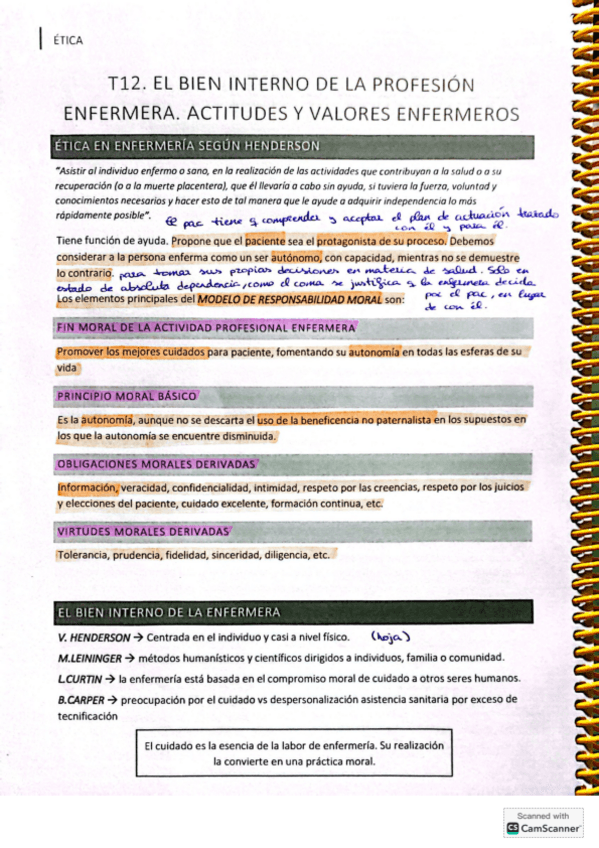 ÉTICA
T12. EL BIEN INTERNO DE LA PROFESIÓN
ENFERMERA. ACTITUDES Y VALORES ENFERMEROS
ÉTICA EN ENFERMERÍA SEGÚN HENDERSON
"Asistir al individuo enfermo o sano, en la realización de las actividades que contribuyan a la salud o a su
recuperación (o a la muerte placentera), que él llevaría a cabo sin ayuda, si tuviera la fuerza, voluntad y
conocimientos necesarios y hacer esto de tal manera que le ayude a adquirir independencia lo más
rápidamente posible".
El pac tiene q comprender y aceptar el plan de actuación tratado
con él y para él.
Tiene función de ayuda. Propone que el paciente sea el protagonista de su proceso. Debemos
considerar a la persona enferma como un ser autónomo, con capacidad, mientras no se demuestre
lo contrario. para tomar sus propias decisiones en materia de salud. Sólo en
estado de absoluta dependencia, como el coma se justifica q la enfermera decida
por el pac, en lugar
de con él.
Los elementos principales del MODELO DE RESPONSABILIDAD MORAL son:
FIN MORAL DE LA ACTIVIDAD PROFESIONAL ENFERMERA
Promover los mejores cuidados para paciente, fomentando su autonomía en todas las esferas de su
vida
PRINCIPIO MORAL BÁSICO
Es la autonomía, aunque no se descarta el uso de la beneficencia no paternalista en los supuestos en
los que la autonomía se encuentre disminuida.
OBLIGACIONES MORALES DERIVADAS
Información, veracidad, confidencialidad, intimidad, respeto por las creencias, respeto por los juicios
y elecciones del paciente, cuidado excelente, formación continua, etc.
VIRTUDES MORALES DERIVADAS
Tolerancia, prudencia, fidelidad, sinceridad, diligencia, etc.
EL BIEN INTERNO DE LA ENFERMERA
V. HENDERSON → Centrada en el individuo y casi a nivel físico. (hoja)
M.LEININGER → métodos humanísticos y científicos dirigidos a individuos, familia o comunidad.
L.CURTIN → la enfermería está basada en el compromiso moral de cuidado a otros seres humanos.
B.CARPER → preocupación por el cuidado vs despersonalización asistencia sanitaria por exceso de
tecnificación
El cuidado es la esencia de la labor de enfermería. Su realización
la convierte en una práctica moral.
Scanned with
CS CamScanner